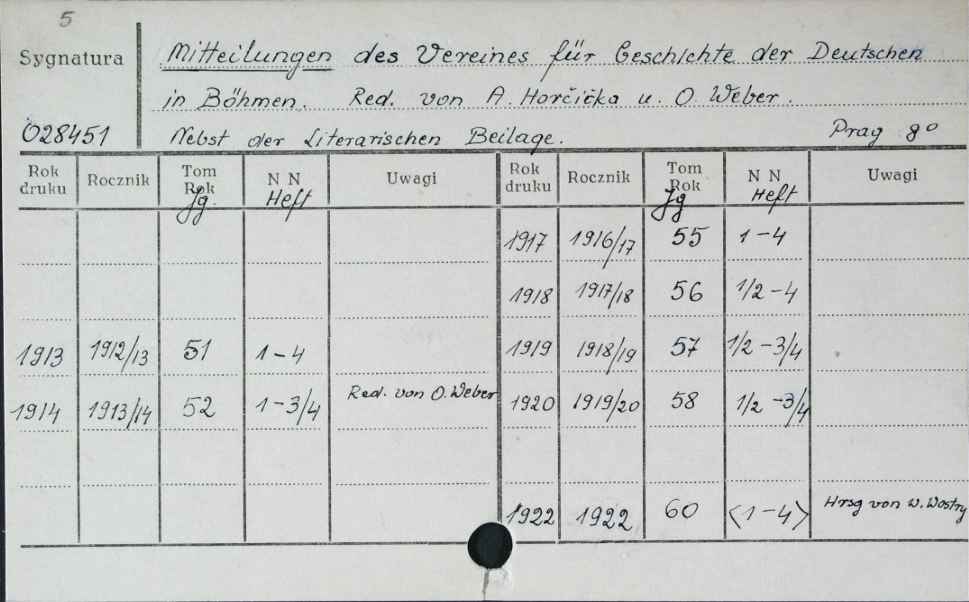 5
Sygnatura
Mitteilungen des Vereines für Geschichte der Deutschen
in Böhmen. Red. von A. Horčička u. O. Weber.
028451
Nebst der Literarischen Beilage.
Prag 8°
Rok druku Rocznik Tom Rok Jg. N N Heft Uwagi Rok druku Rocznik Tom Rok Jg N N Heft Uwagi
1917 1916/17 55 1-4
1918 1917/18 56 1/2-4
1913 1912/13 51 1-4 1919 1918/19 57 1/2-3/4
1914 1913/14 52 1-3/4 Red. von O. Weber 1920 1919/20 58 1/2-3/4
1922 1922 60 <1-4> Hrsg von W. Wostry